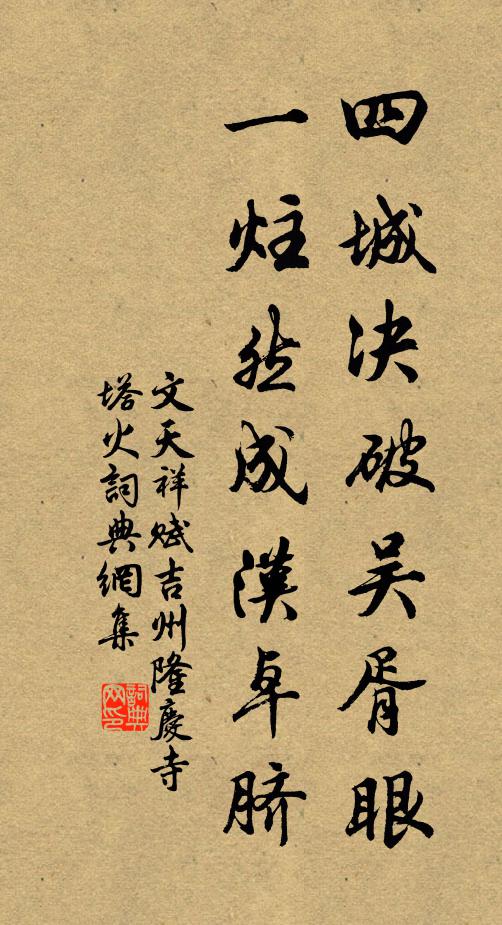 四城决破吴胥眼
一炷然成漢卓脐
文天祥赋吉州隆慶寺
塔火詞典網集
詞典
网印